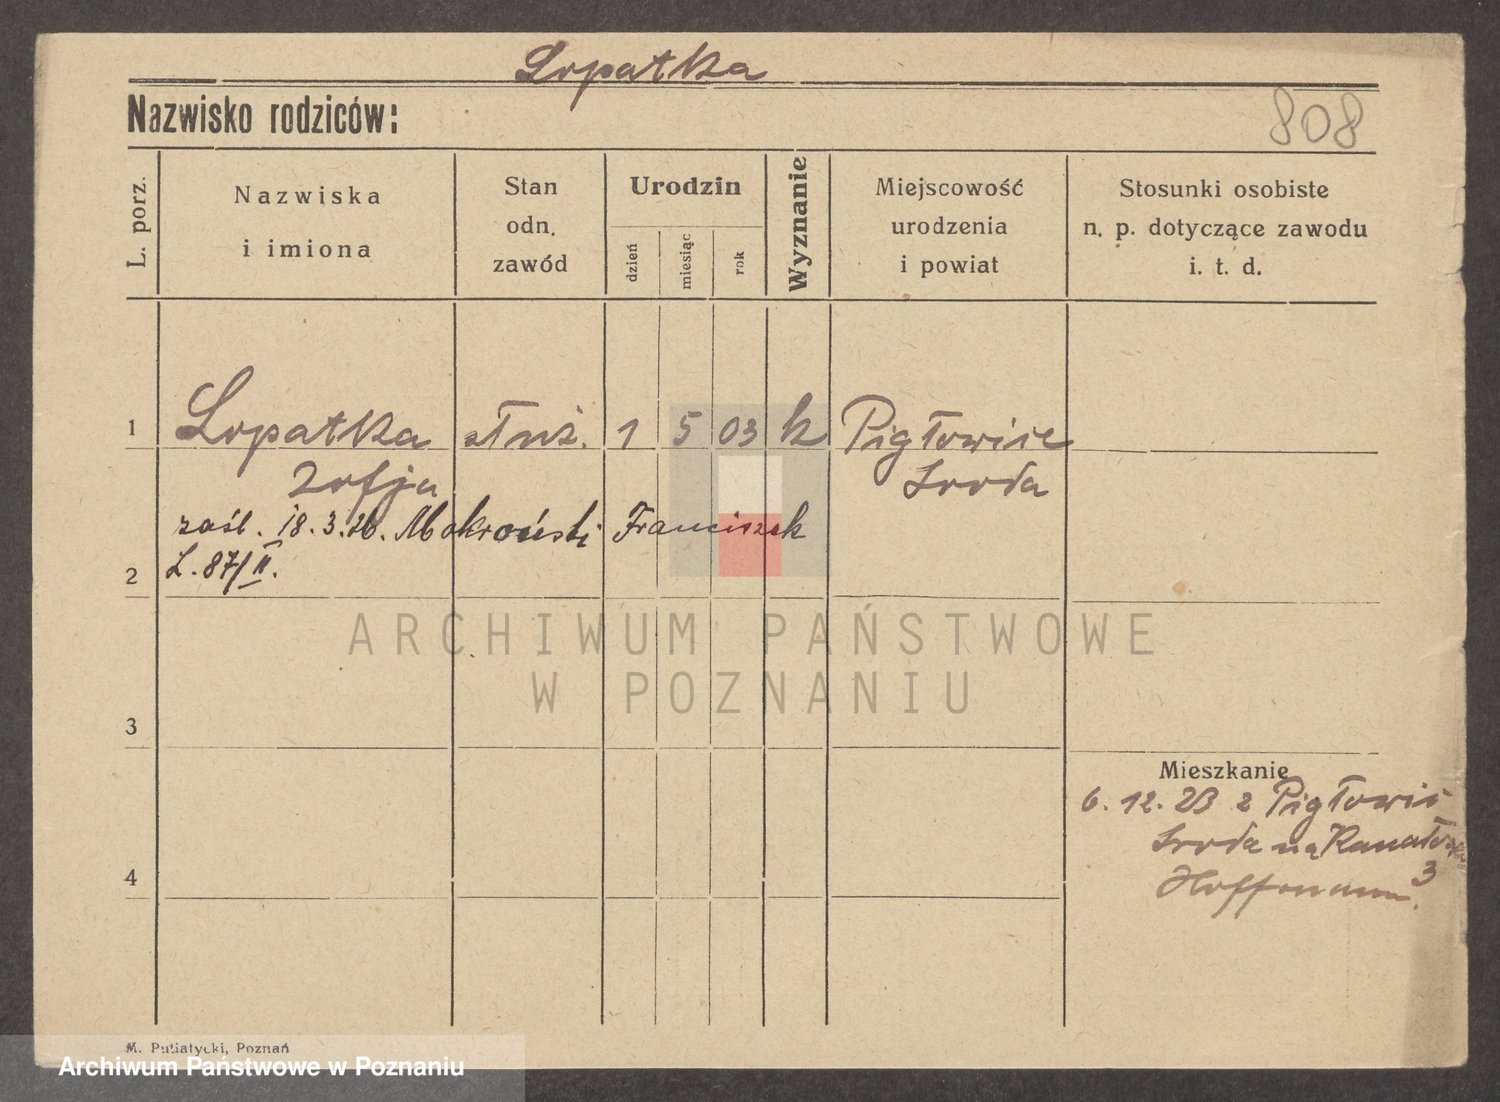 Lopatka
Nazwisko rodziców:
808
L. porz.
Nazwiska
i imiona
Stan
odn.
zawód
Urodzin
dzień
miesiąc
rok
Wyznanie
Miejscowość
urodzenia
i powiat
Stosunki osobiste
n. p. dotyczące zawodu
i. t. d.
1
Lopatka
służ.
1
5
03
k
Pigłowice
Zofja
Sroda
zaśl. 18.3.26. Mokroński Franciszek
L. 87/II.
2
ARCHIWUM PAŃSTWOWE
W POZNANIU
3
Mieszkanie
6. 12. 23 z Pigłowic
Sroda na
3
Hoffmann.
4
M. Putiatycki, Poznań
Archiwum Państwowe w Poznaniu